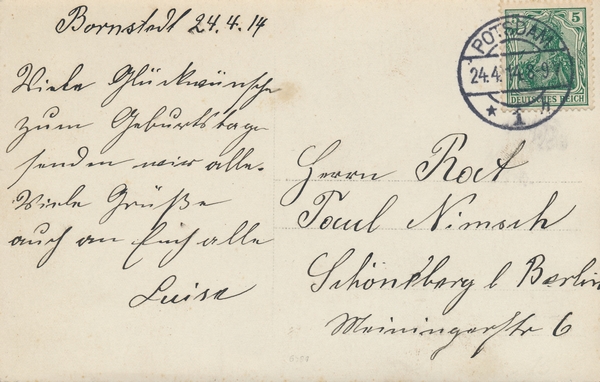 Bornstedt 24.4.14
Viele Glückwünsche
zum Geburtstage
senden wir alle.
Viele Grüße
auch an Euch alle
Luise
POTSDAM
24.4.14.8-9
* 1 n
5
DEUTSCHES REICH
Herrn Rat
Paul Nimsch
Schöneberg b Berlin
Meiningerstr 6